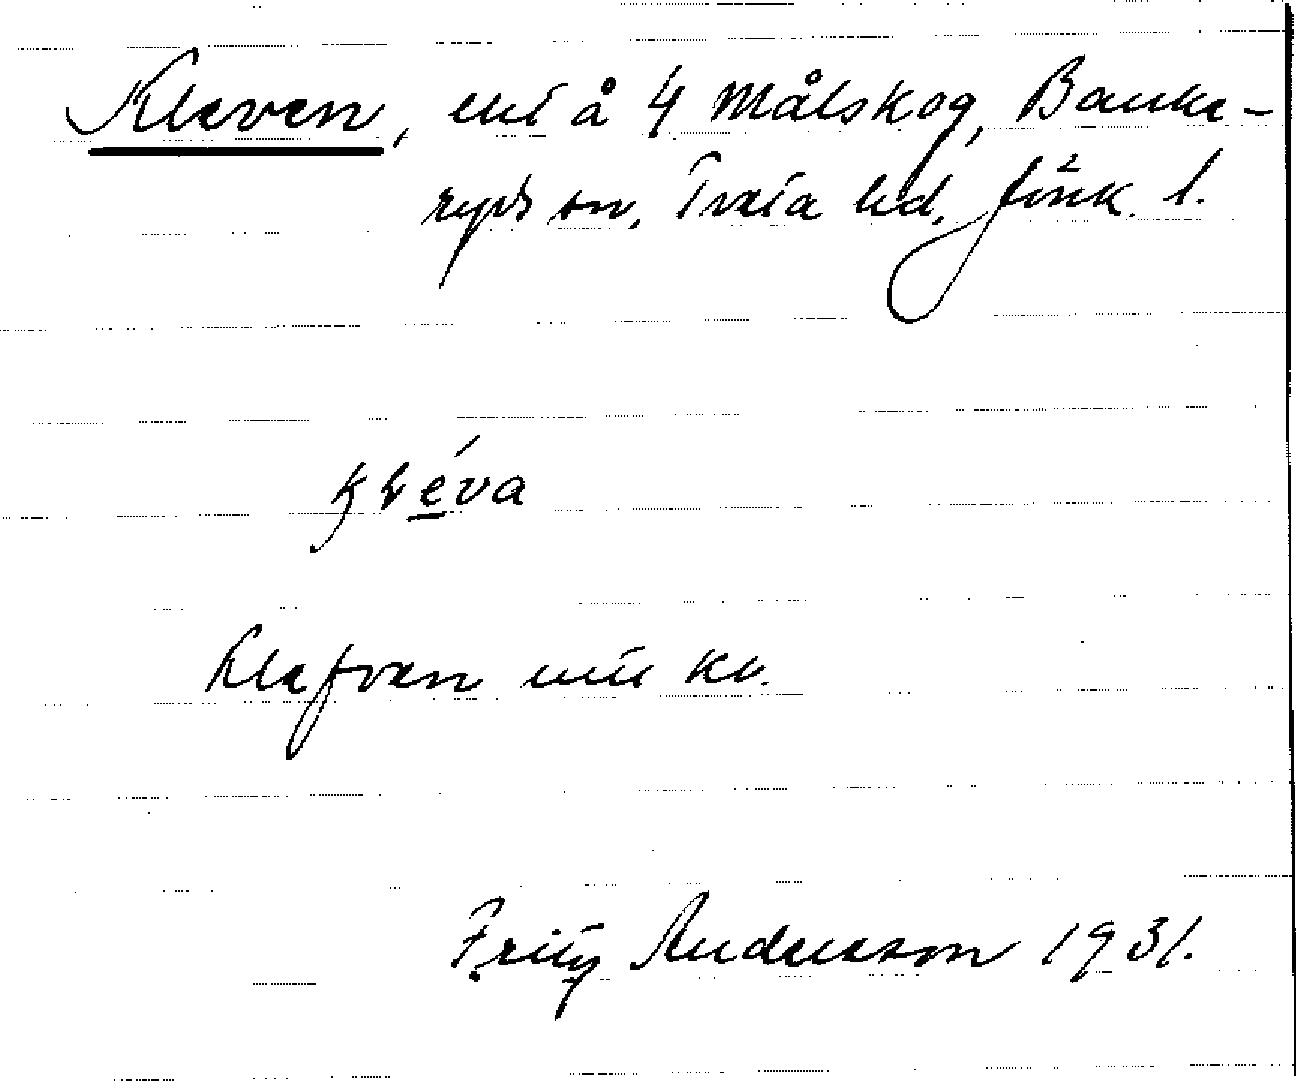 Kleven, å 4 Målskog, Banke-
ryds sn, Tveta hd, Jönk. l.
kléva
Klefven
Fritz Andersson 1931.